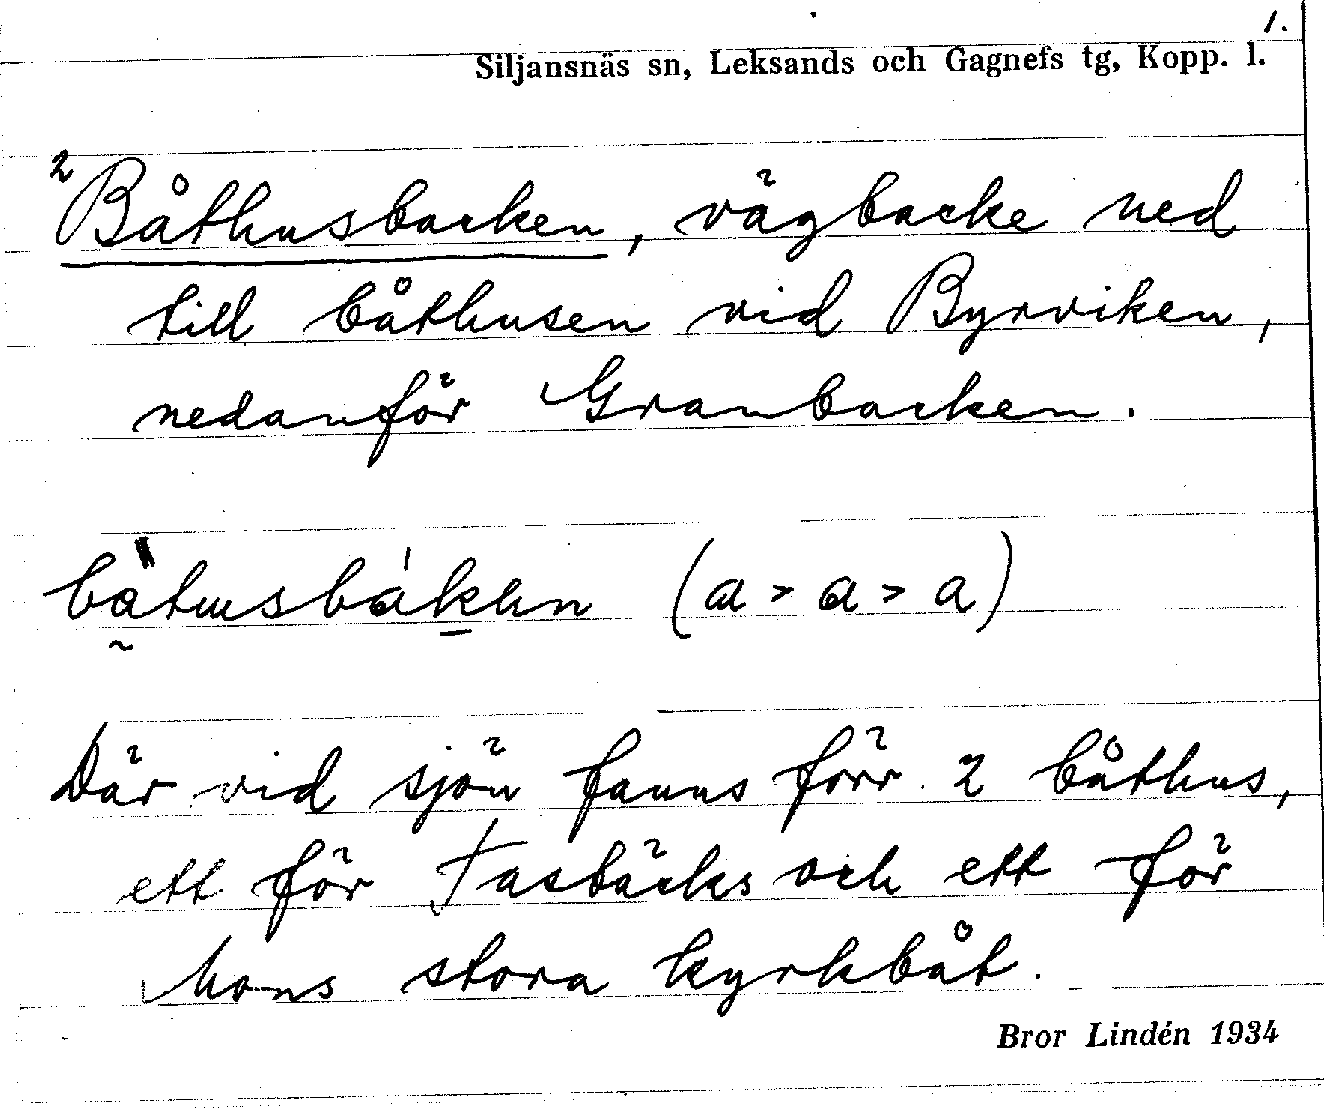 1.
Siljansnäs sn, Leksands och Gagnefs tg, Kopp. l.
2 Båthusbacken, vägbacke ned
till båthusen vid Byrviken,
nedanför Granbacken.
(a > a > a)
Där vid sjön fanns förr 2 båthus,
ett för Tasbäcks och ett för
Mons stora kyrkbåt.
Bror Lindén 1934